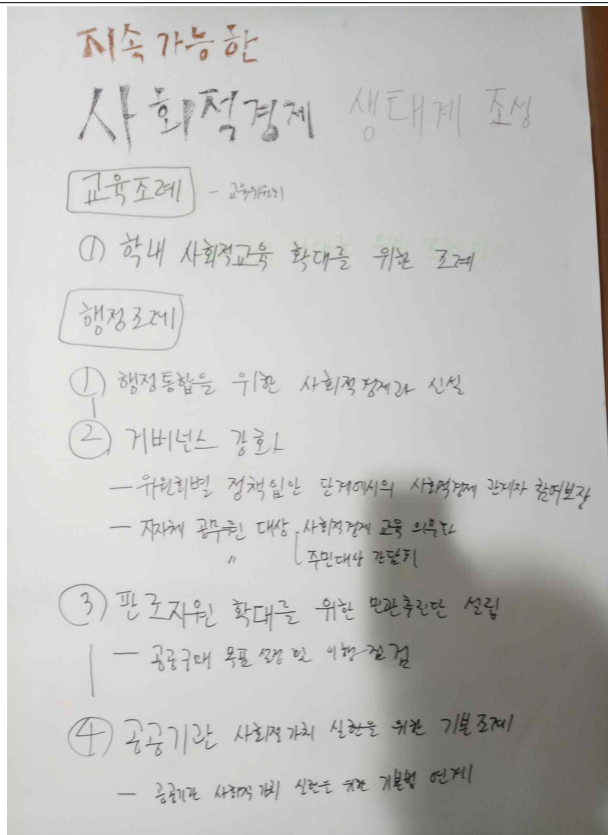 지속가능한
사회적경제 생태계 조성
교육조례 - 교육위원회
① 학내 사회적교육 확대를 위한 조례
행정조례
① 행정통합을 위한 사회적경제과 신설
② 거버넌스 강화
— 위원회별 정책입안 단계에서의 사회적경제 관계자 참여보장
— 지자체 공무원 대상 사회적경제 교육 의무화
〃 주민대상
③ 판로지원 확대를 위한 민관추진단 설립
— 공공구매 목표 설정 및 이행 점검
④ 공공기관 사회적가치 실현을 위한 기본조례
— 공공기관 사회적 가치 실현을 위한 기본법 연계